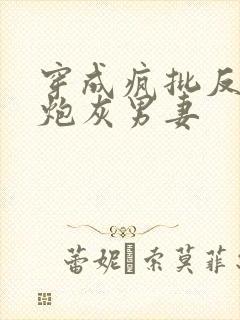 穿成疯批反
炮灰男妻
蕾妮·索莫菲